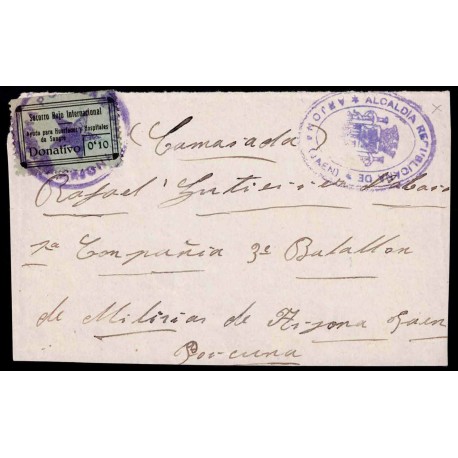 Socorro Rojo Internacional
Ayuda para Guarderías y Hospitales
de Sangre
Donativo 0'10
ALCALDIA REPUBLICANA DE ARJONA (JAEN)
Camarada
Rafael Gutierrez
1ª Compañia 3º Batallon
de Milicias de Arjona Jaen
Porcuna